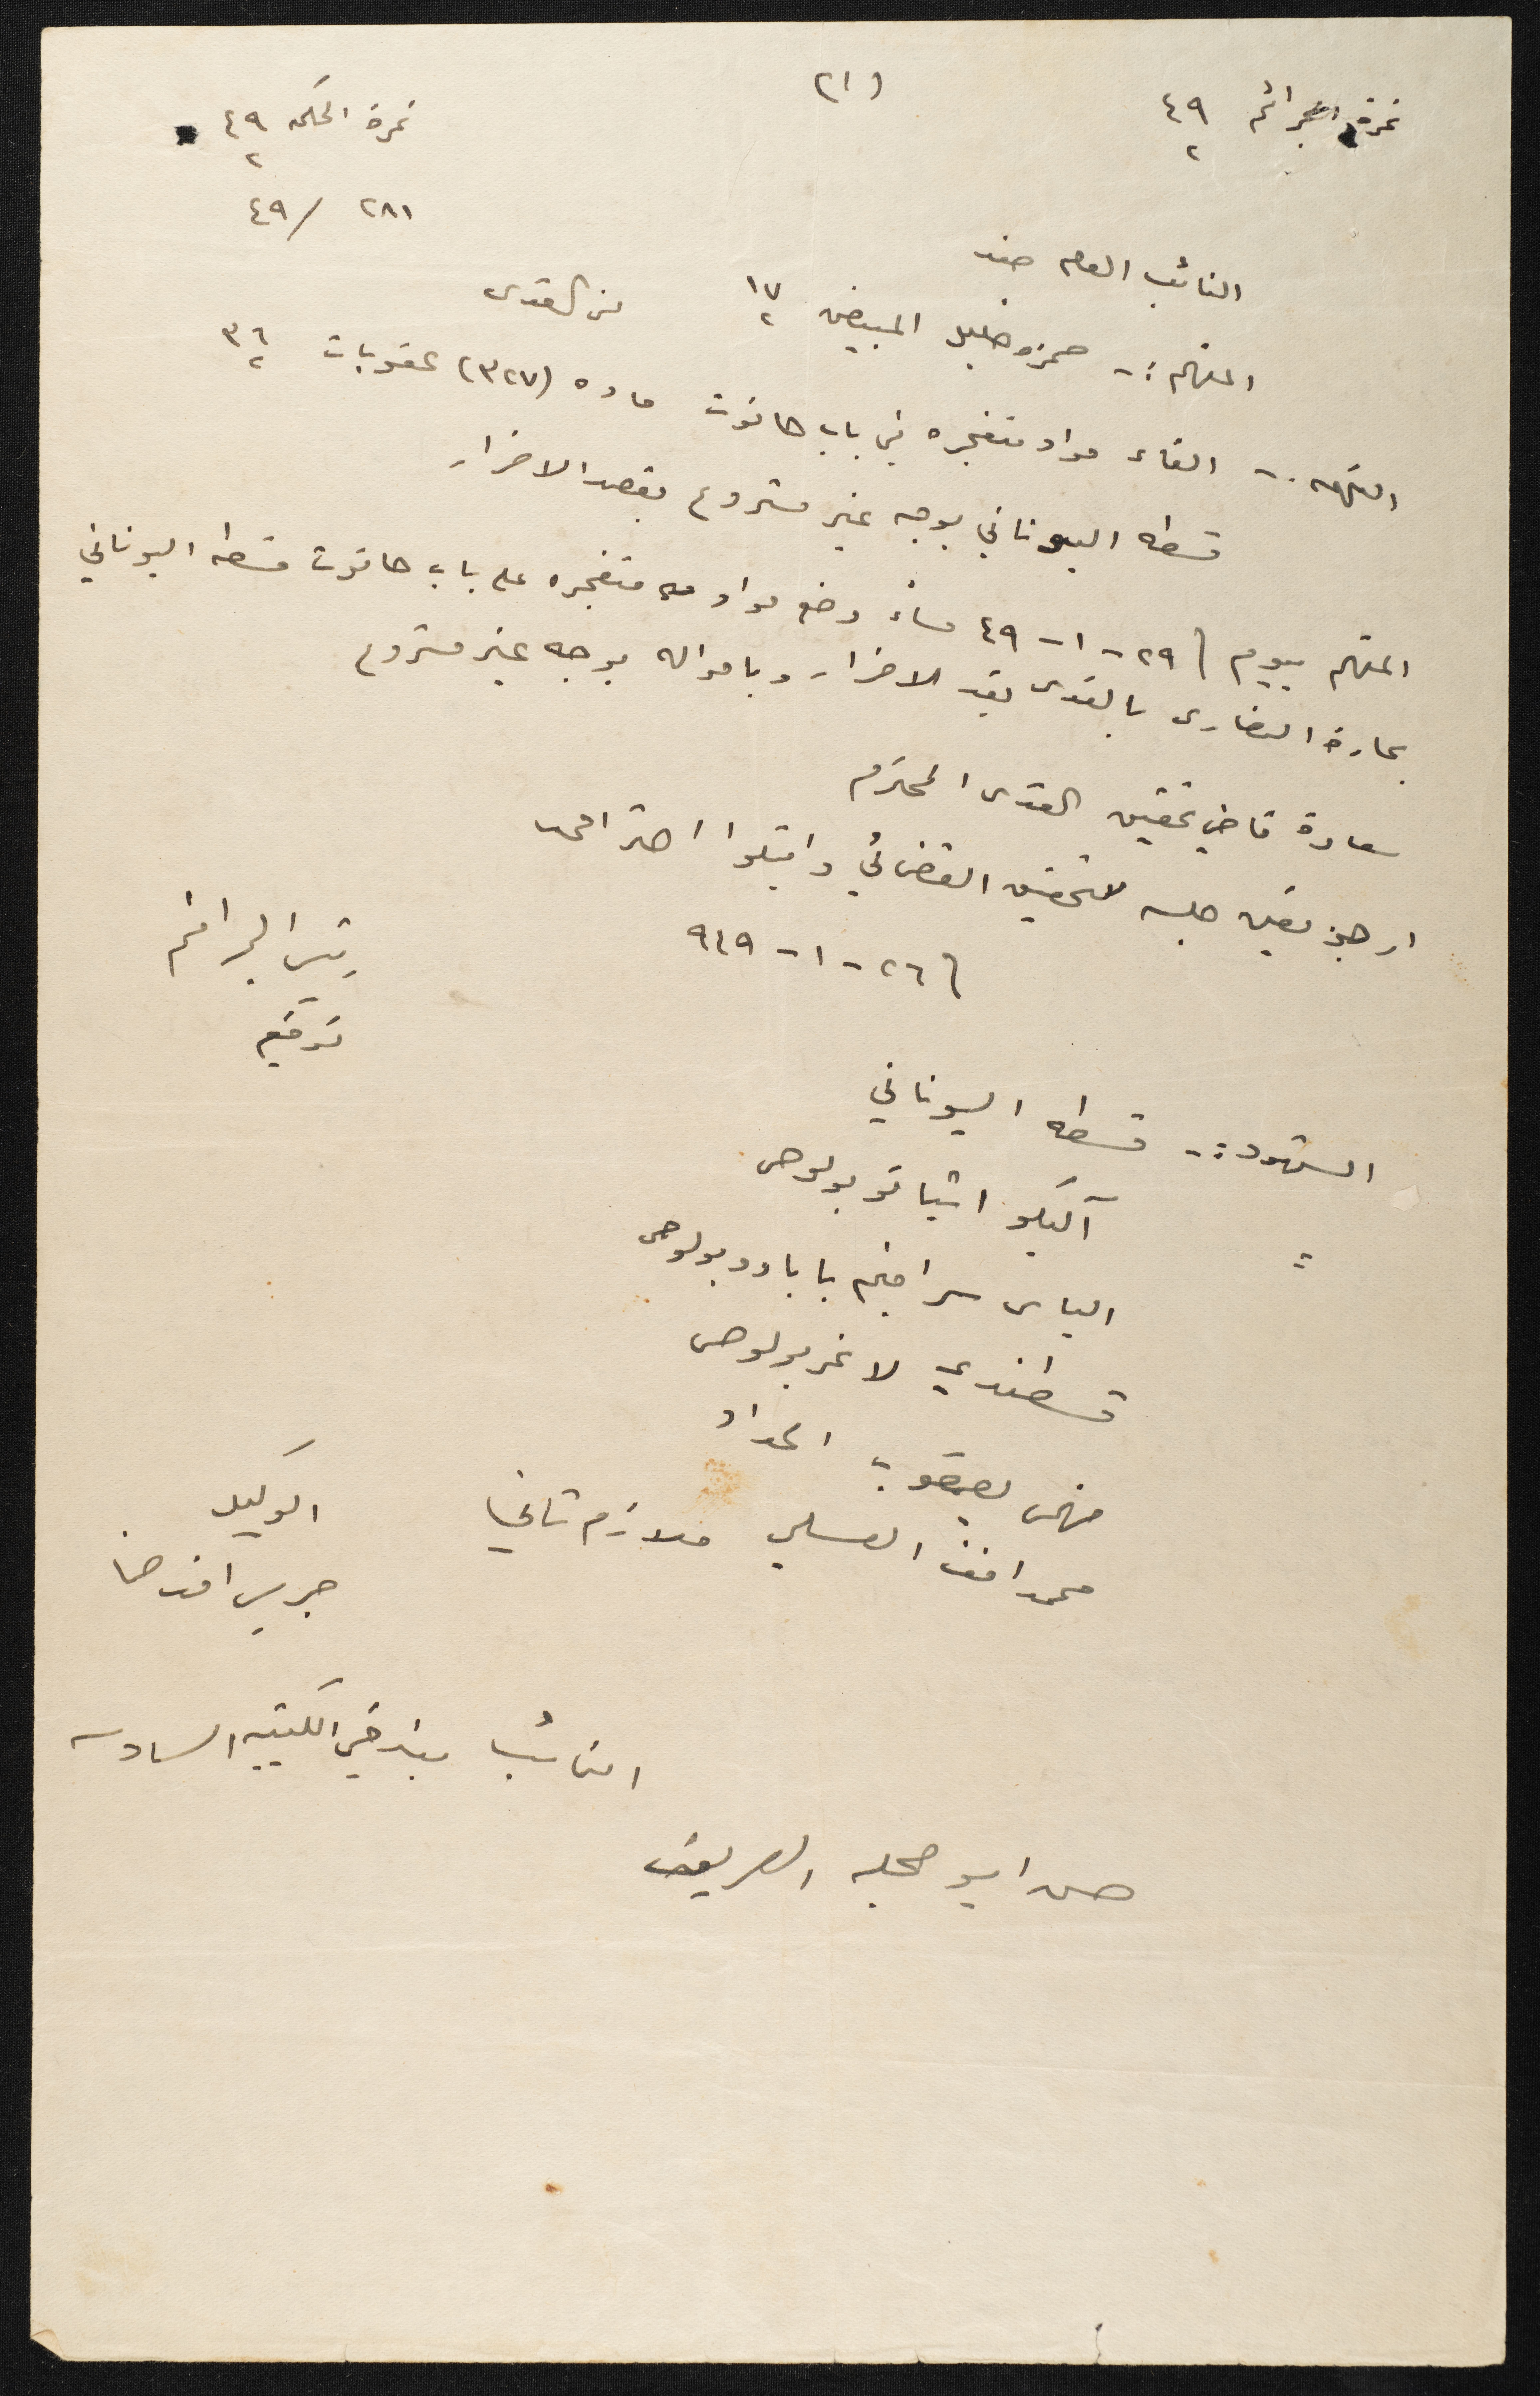 نمرة الجرائم ٤٩/٢
(٢١)
نمرة المحكمه ٤٩/٢
٢٨١ / ٤٩
النائب العام ضد
المتهم :- حمزه خليل المبيض ١٧/٢ من القدس
التهمه :- القاء مواد متفجره في باب حانوت ماده (٣٢٧) عقوبات ٣٦/٢
قسطه اليوناني بوجه غير مشروع بقصد الاضرار
المتهم بيوم ٢٩-١-٤٩ مساءً وضع مواد متفجره على باب حانوت قسطه اليوناني
بحارة النصارى بالقدس بقصد الاضرار وبامواله بوجه غير مشروع
سعادة قاضي تحقيق القدس المحترم
ارجو تعين جلسه للتحقيق القضائي واقبلوا احترامي
٢٦-١-٩٤٩
رئيس الجرائم
توقيع
الشهود :- قسطه اليوناني
آليكو اثيانوبولوس
الياس سرافيم بابادوبولوس
قسطندي لاغربولوس
فهمي يعقوب الحداد
محمد افندي العسلي ملازم ثاني
الوكيل
جريس افندي
النائب بندقي الكتيبه السادسه
حسن ابو عجله العريف